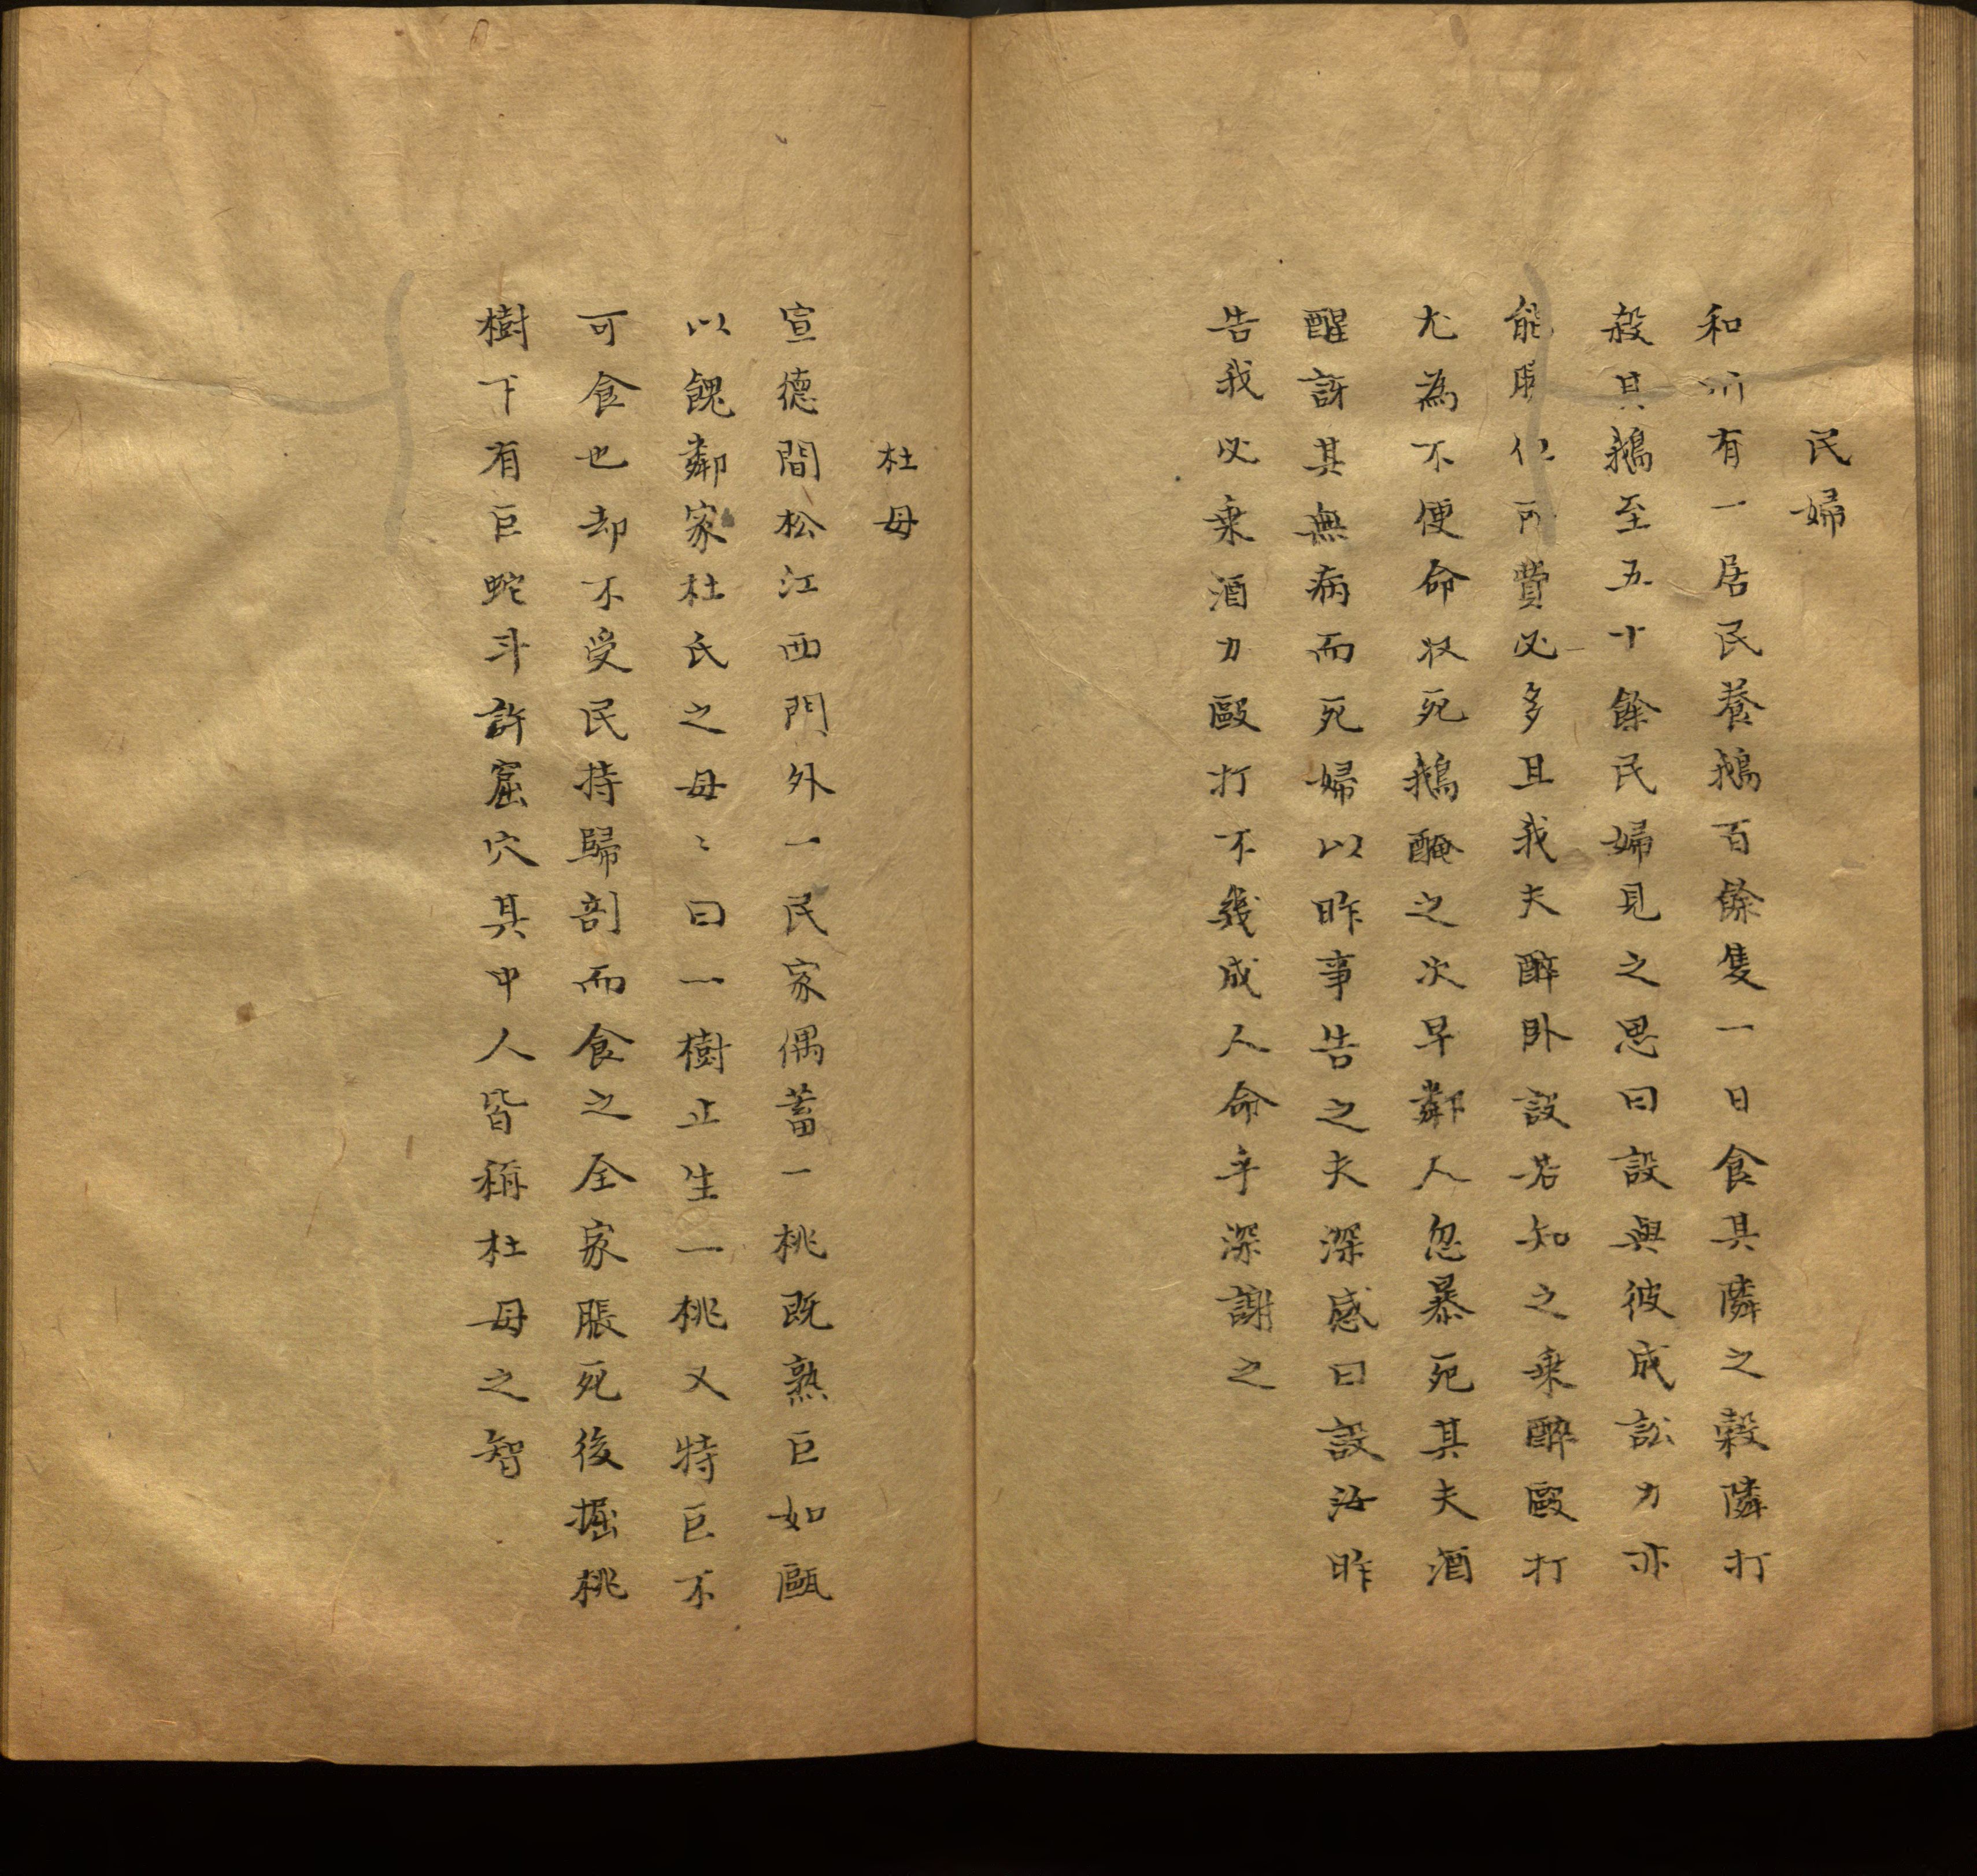 民婦
和州有一居民養鵝百餘隻一日食其隣之穀隣打
殺其鵝至五十餘民婦見之思曰設與彼成訟力亦
能勝但所費必多且我夫醉卧設若知之乗醉毆打
尤為不便命収死鵝醃之次早鄰人忽暴死其夫酒
醒訝其無病而死婦以昨事告之夫深感曰設汝昨
告我必乗酒力毆打不幾成人命乎深謝之
杜母
宣德間松江西門外一民家偶蓄一桃既熟巨如甌
以餽鄰家杜氏之母〻曰一樹止生一桃又特巨不
可食也却不受民持歸剖而食之全家脹死後掘桃
樹下有巨蛇斗許窟穴其中人皆稱杜母之智